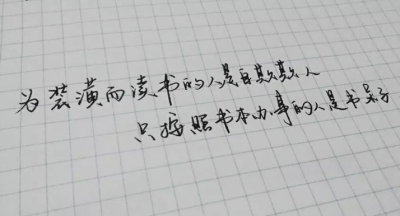 为装潢而读书的人是自欺欺人
只按照书本办事的人是书呆子